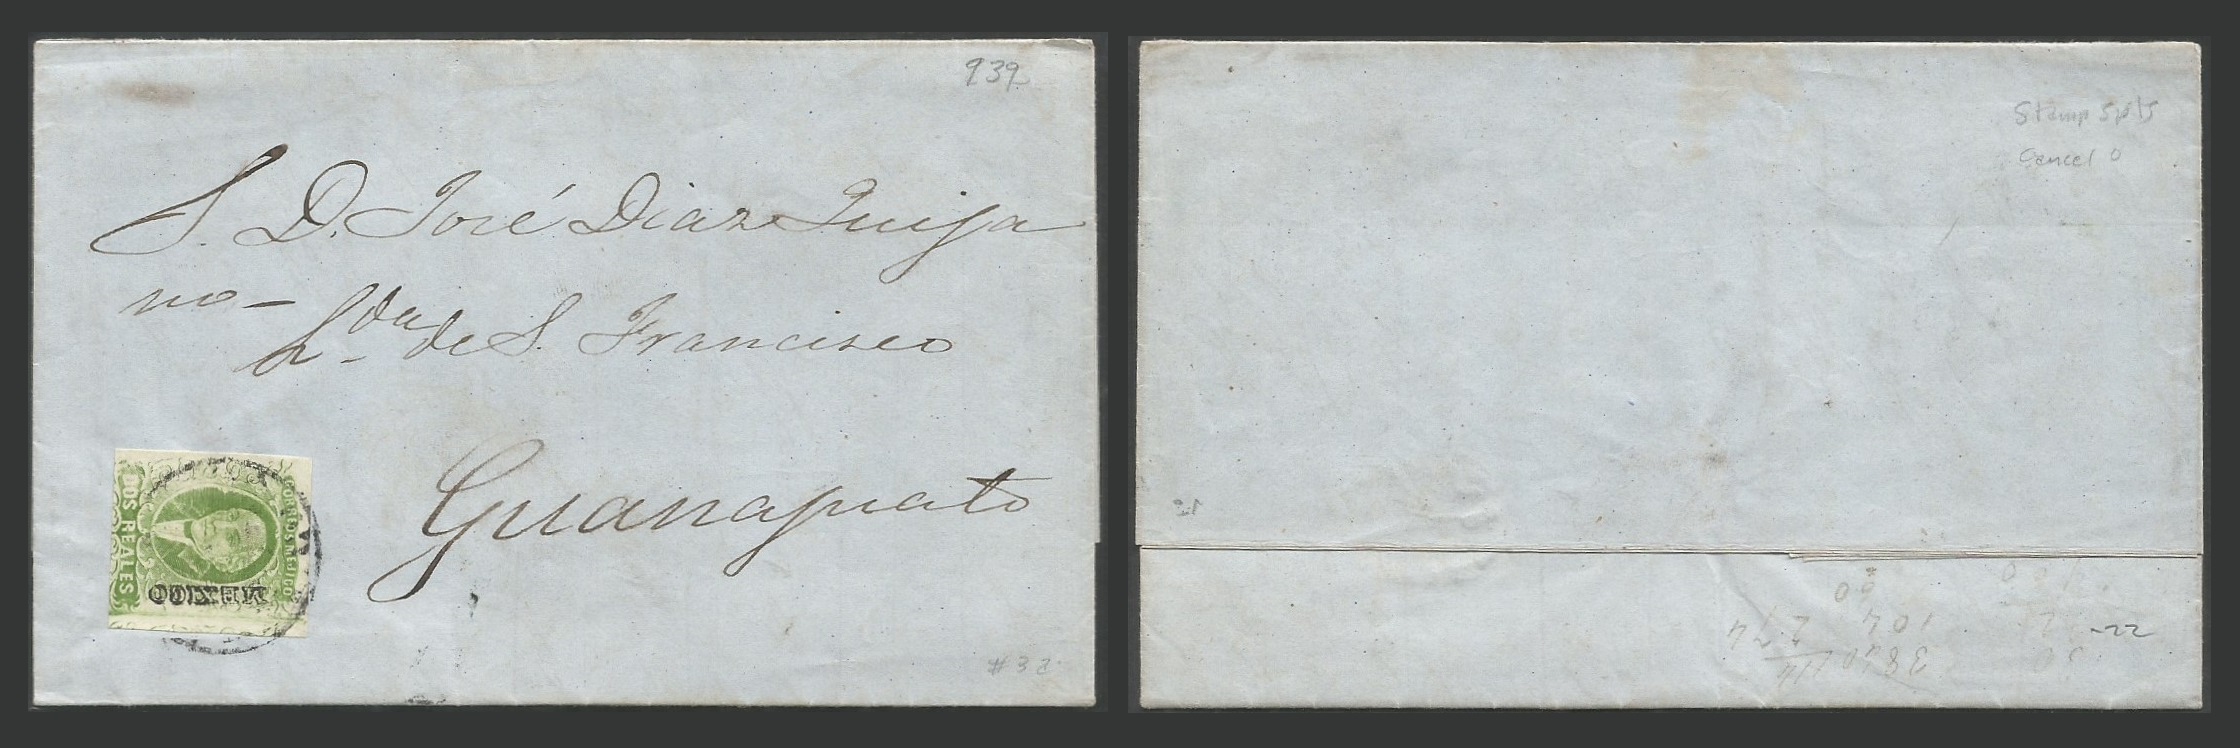 939
S. D. José Diaz Quija
no-
h.da de S. Francisco
Guanajuato
CORREOS MEJICO
DOS REALES
MEXICO
#3a
Stamp 5pts
Cancel 0
-22